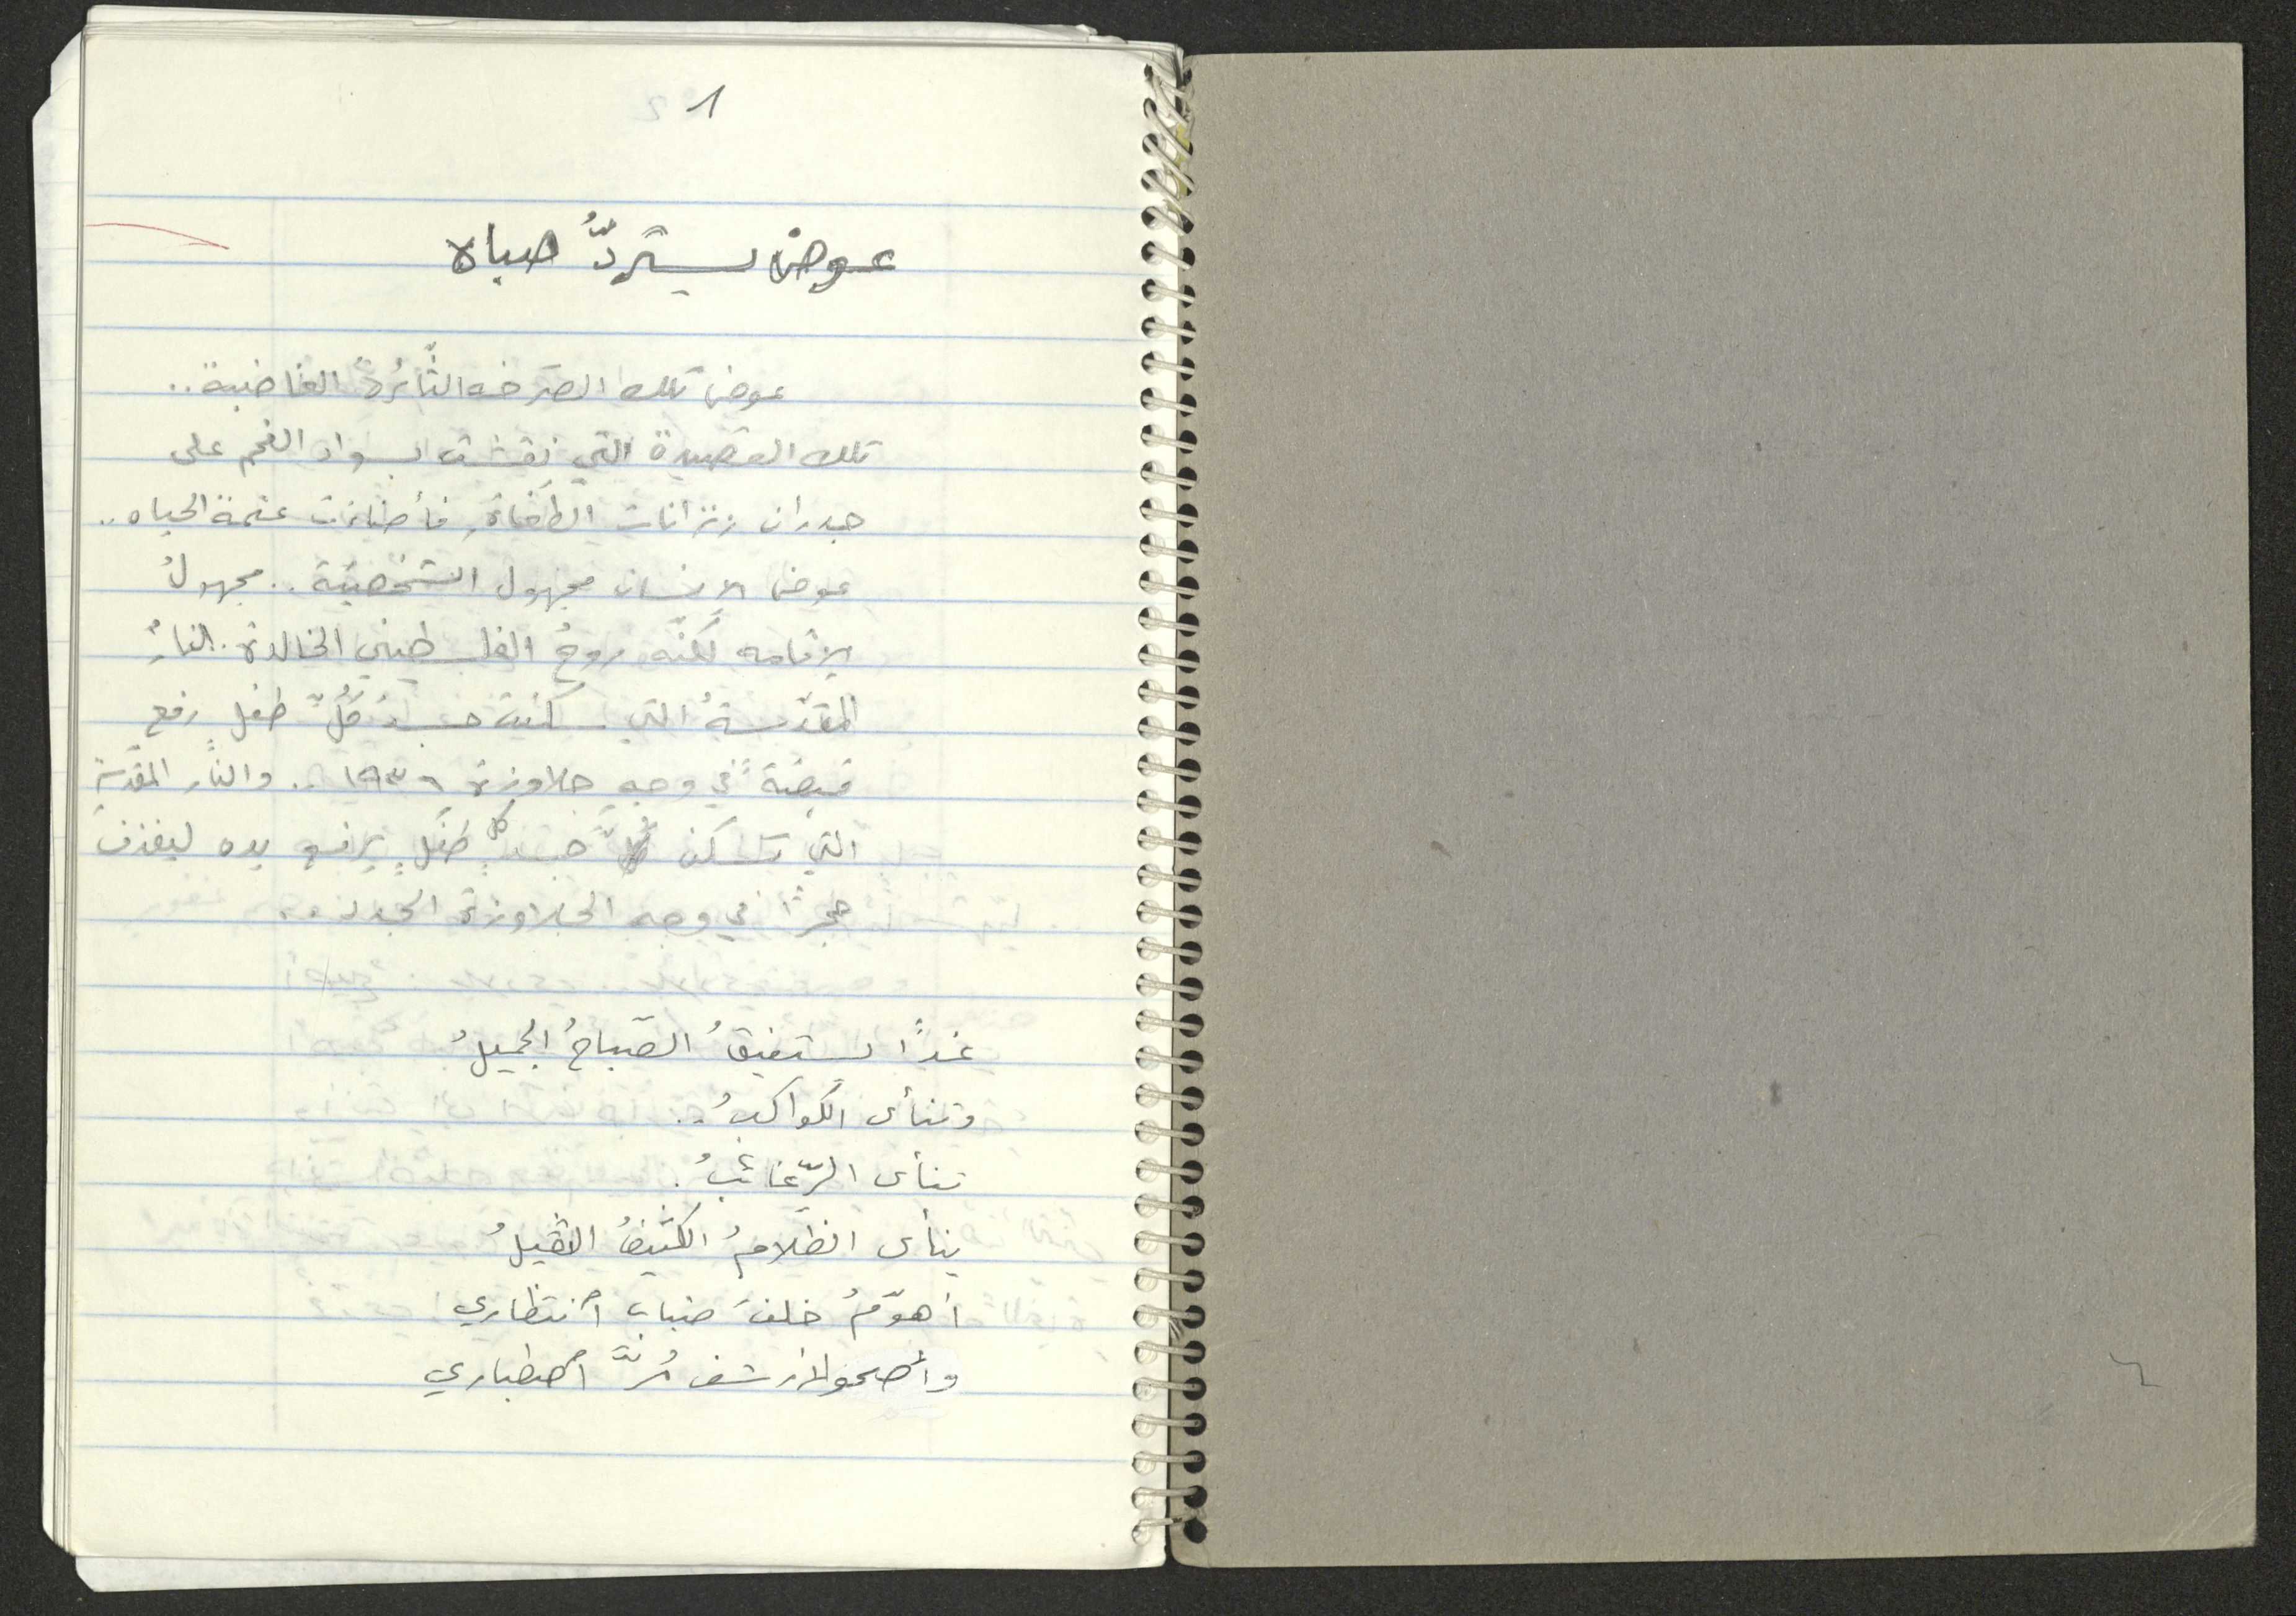 ١
عوض يستردُّ صباه
عوض تلك الصرخه الثَّائرة الغاضبة..
تلك القصيدة التي نقشت بسواد الفحم على
جدران زنزانات الطغاة، فأضاءت عتمة الحياه..
عوض الانسان مجهول الشخصيّة.. مجهولُ
الإقامه لكنّه روحُ الفلسطيني الخالدة. النارُ
المقدّسةُ التي سكنت جسدَ كُلِّ طفلٍ رفع
قبضتهُ في وجهِ جلاوزة ١٩٣٦.. والنّار المقدّسة
التي تسكن جسد كل طفلٍ يرفع يده ليقذف
حجرًا في وجه الجلاوزة الجدد..
غداً يستفيقُ الصّباحُ الجميلُ
وتنأى الكواكبُ..
تنأى الرّغائبُ.
ينأى الظلامُ الكثيفُ الثقيلُ
أهوّمُ خلفَ ضباب انتظاري
وأصحو لأرشف مُرَّ اصطباري